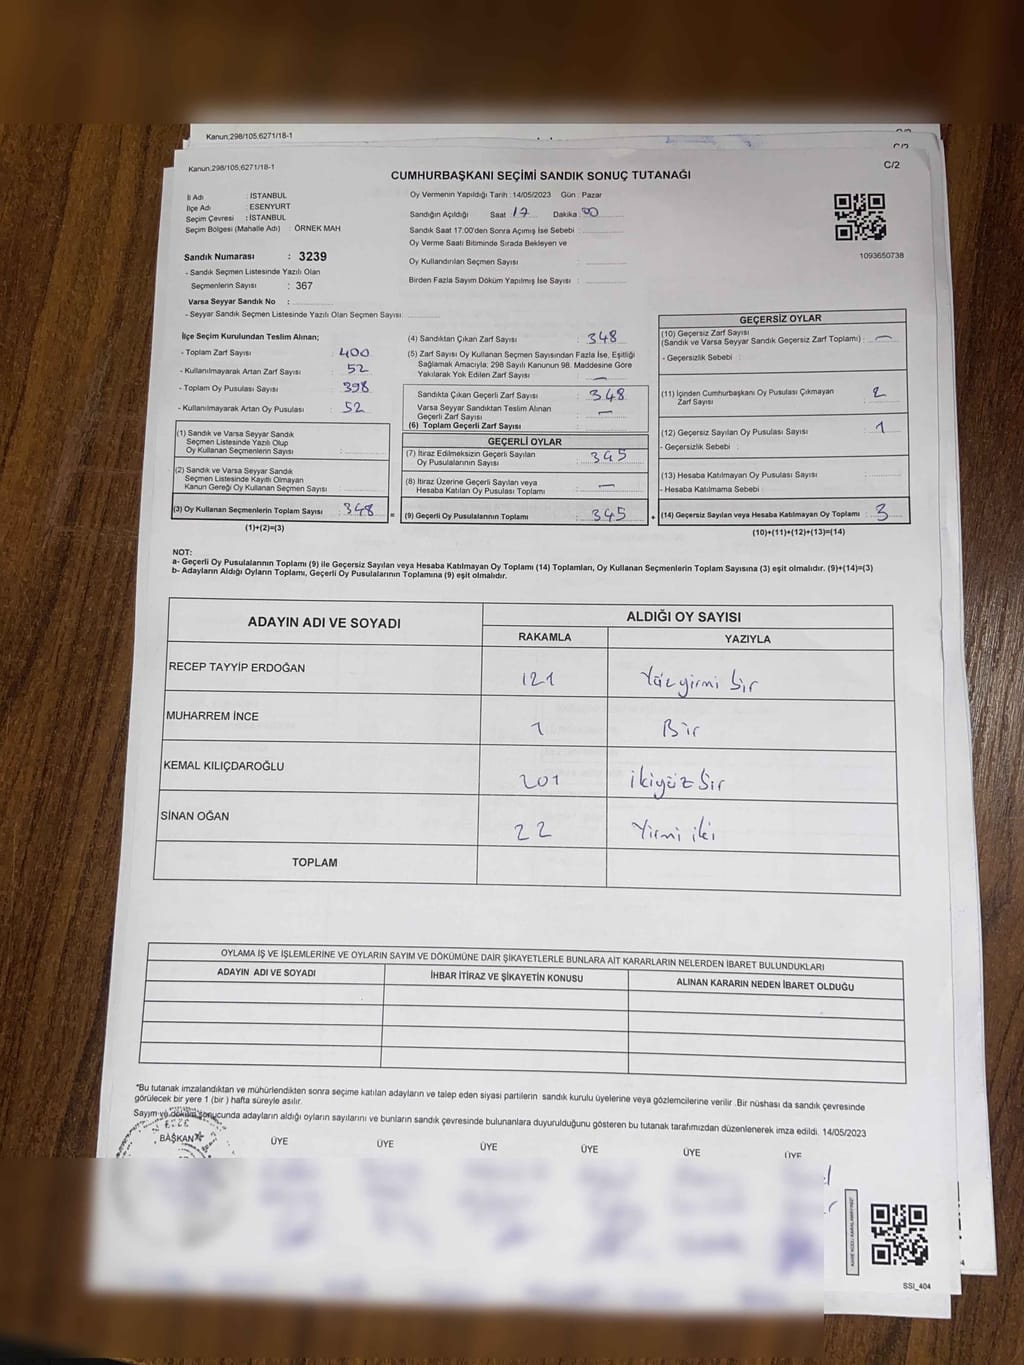 Kanun;298/105,6271/18-1
Kanun;298/105,6271/18-1
C/2
CUMHURBAŞKANI SEÇİMİ SANDIK SONUÇ TUTANAĞI
İl Adı : İSTANBUL
İlçe Adı : ESENYURT
Seçim Çevresi : İSTANBUL
Seçim Bölgesi (Mahalle Adı) : ÖRNEK MAH
Sandık Numarası : 3239
- Sandık Seçmen Listesinde Yazılı Olan
Seçmenlerin Sayısı : 367
Varsa Seyyar Sandık No :
- Seyyar Sandık Seçmen Listesinde Yazılı Olan Seçmen Sayısı:
Oy Vermenin Yapıldığı Tarih : 14/05/2023 Gün : Pazar
Sandığın Açıldığı Saat 17 Dakika 00
Sandık Saat 17:00'den Sonra Açımış İse Sebebi :
Oy Verme Saati Bitiminde Sırada Bekleyen ve
Oy Kullandırılan Seçmen Sayısı :
Birden Fazla Sayım Döküm Yapılmış İse Sayısı :
1093650738
İlçe Seçim Kurulundan Teslim Alınan;
- Toplam Zarf Sayısı : 400
- Kullanılmayarak Artan Zarf Sayısı : 52
- Toplam Oy Pusulası Sayısı : 398
- Kullanılmayarak Artan Oy Pusulası : 52
(1) Sandık ve Varsa Seyyar Sandık
Seçmen Listesinde Yazılı Olup
Oy Kullanan Seçmenlerin Sayısı :
(2) Sandık ve Varsa Seyyar Sandık
Seçmen Listesinde Kayıtlı Olmayan
Kanun Gereği Oy Kullanan Seçmen Sayısı :
(3) Oy Kullanan Seçmenlerin Toplam Sayısı : 348
(1)+(2)=(3)
(4) Sandıktan Çıkan Zarf Sayısı : 348
(5) Zarf Sayısı Oy Kullanan Seçmen Sayısından Fazla İse, Eşitliği
Sağlamak Amacıyla; 298 Sayılı Kanunun 98. Maddesine Göre
Yakılarak Yok Edilen Zarf Sayısı : —
Sandıkta Çıkan Geçerli Zarf Sayısı : 348
Varsa Seyyar Sandıktan Teslim Alınan
Geçerli Zarf Sayısı : —
(6) Toplam Geçerli Zarf Sayısı :
GEÇERLİ OYLAR
(7) İtiraz Edilmeksizin Geçerli Sayılan
Oy Pusulalarının Sayısı : 345
(8) İtiraz Üzerine Geçerli Sayılan veya
Hesaba Katılan Oy Pusulası Toplamı : —
= (9) Geçerli Oy Pusulalarının Toplamı : 345
GEÇERSİZ OYLAR
(10) Geçersiz Zarf Sayısı
(Sandık ve Varsa Seyyar Sandık Geçersiz Zarf Toplamı) : —
- Geçersizlik Sebebi :
(11) İçinden Cumhurbaşkanı Oy Pusulası Çıkmayan
Zarf Sayısı : 2
(12) Geçersiz Sayılan Oy Pusulası Sayısı : 1
- Geçersizlik Sebebi :
(13) Hesaba Katılmayan Oy Pusulası Sayısı :
- Hesaba Katılmama Sebebi :
+ (14) Geçersiz Sayılan veya Hesaba Katılmayan Oy Toplamı : 3
(10)+(11)+(12)+(13)=(14)
NOT:
a- Geçerli Oy Pusulalarının Toplamı (9) ile Geçersiz Sayılan veya Hesaba Katılmayan Oy Toplamı (14) Toplamları, Oy Kullanan Seçmenlerin Toplam Sayısına (3) eşit olmalıdır. (9)+(14)=(3)
b- Adayların Aldığı Oyların Toplamı, Geçerli Oy Pusulalarının Toplamına (9) eşit olmalıdır.
ADAYIN ADI VE SOYADI ALDIĞI OY SAYISI
RAKAMLA YAZIYLA
RECEP TAYYİP ERDOĞAN 121 Yüzyirmi bir
MUHARREM İNCE 1 Bir
KEMAL KILIÇDAROĞLU 201 ikiyüz bir
SİNAN OĞAN 22 Yirmi iki
TOPLAM
OYLAMA İŞ VE İŞLEMLERİNE VE OYLARIN SAYIM VE DÖKÜMÜNE DAİR ŞİKAYETLERLE BUNLARA AİT KARARLARIN NELERDEN İBARET BULUNDUKLARI
ADAYIN ADI VE SOYADI İHBAR İTİRAZ VE ŞİKAYETİN KONUSU ALINAN KARARIN NEDEN İBARET OLDUĞU
*Bu tutanak imzalandıktan ve mühürlendikten sonra seçime katılan adayların ve talep eden siyasi partilerin sandık kurulu üyelerine veya gözlemcilerine verilir .Bir nüshası da sandık çevresinde
görülecek bir yere 1 (bir ) hafta süreyle asılır.
Sayım ve döküm sonucunda adayların aldığı oyların sayılarını ve bunların sandık çevresinde bulunanlara duyurulduğunu gösteren bu tutanak tarafımızdan düzenlenerek imza edildi. 14/05/2023
3239
BAŞKAN ÜYE ÜYE ÜYE ÜYE ÜYE ÜYE
SSI_404